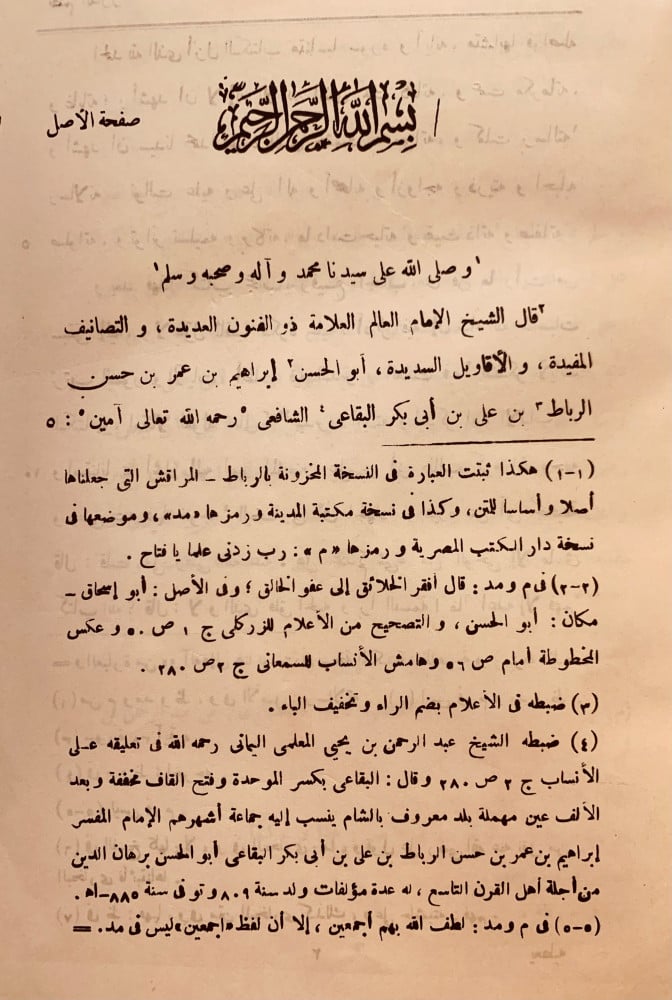 صفحة الأصل
بسم الله الرحمن الرحيم
/
'و صلى الله على سيدنا محمد و آله و صحبه و سلم'
٢قال الشيخ الإمام العالم العلامة ذو الفنون العديدة ، و التصانيف
المفيدة ، و الأقاويل السديدة ، أبو الحسن٢ إبراهيم بن عمر بن حسن
الرباط٣ بن على بن أبى بكر البقاعى٤ الشافعى ٥رحمه الله تعالى آمين٥ : ٥
(١-١) هكذا ثبتت العبارة فى النسخة المخزونة بالرباط – المراقش التى جعلناها
أصلا و أساسا للمتن، وكذا فى نسخة مكتبة المدينة و رمزها «مد»، وموضعها فى
نسخة دار الكتب المصرية و رمزها «م» : رب زدنى علما يا فتاح .
(٢-٢) فى م و مد : قال أفقر الخلائق إلى عفو الخالق ؛ وفى الأصل : أبو إسحاق –
مكان : أبو الحسن ، و التصحيح من الأعلام للزركلى ج ١ ص ٥٠ و عكس
المخطوطة أمام ص ٥٦ وهامش الأنساب للسمعانى ج ٢ ص ٢٨٠ .
(٣) ضبطه فى الأعلام بضم الراء و تخفيف الباء .
(٤) ضبطه الشيخ عبد الرحمن بن يحيى المعلمى اليمانى رحمه الله فى تعليقه على
الأنساب ج ٢ ص ٢٨٠ وقال : البقاعى بكسر الموحدة وفتح القاف مخففة و بعد
الألف عين مهملة بلد معروف بالشام ينسب إليه جماعة أشهرهم الإمام المفسر
إبراهيم بن عمر بن حسن الرباط بن على بن أبى بكر البقاعى أبو الحسن برهان الدين
من أجلة أهل القرن التاسع ، له عدة مؤلفات ولد سنة ٨٠٩ و توفى سنة ٨٨٥ – اه .
(٥-٥) فى م و مد : لطف الله بهم أجمعين ، إلا أن لفظ «اجمعين» ليس فى مد. =